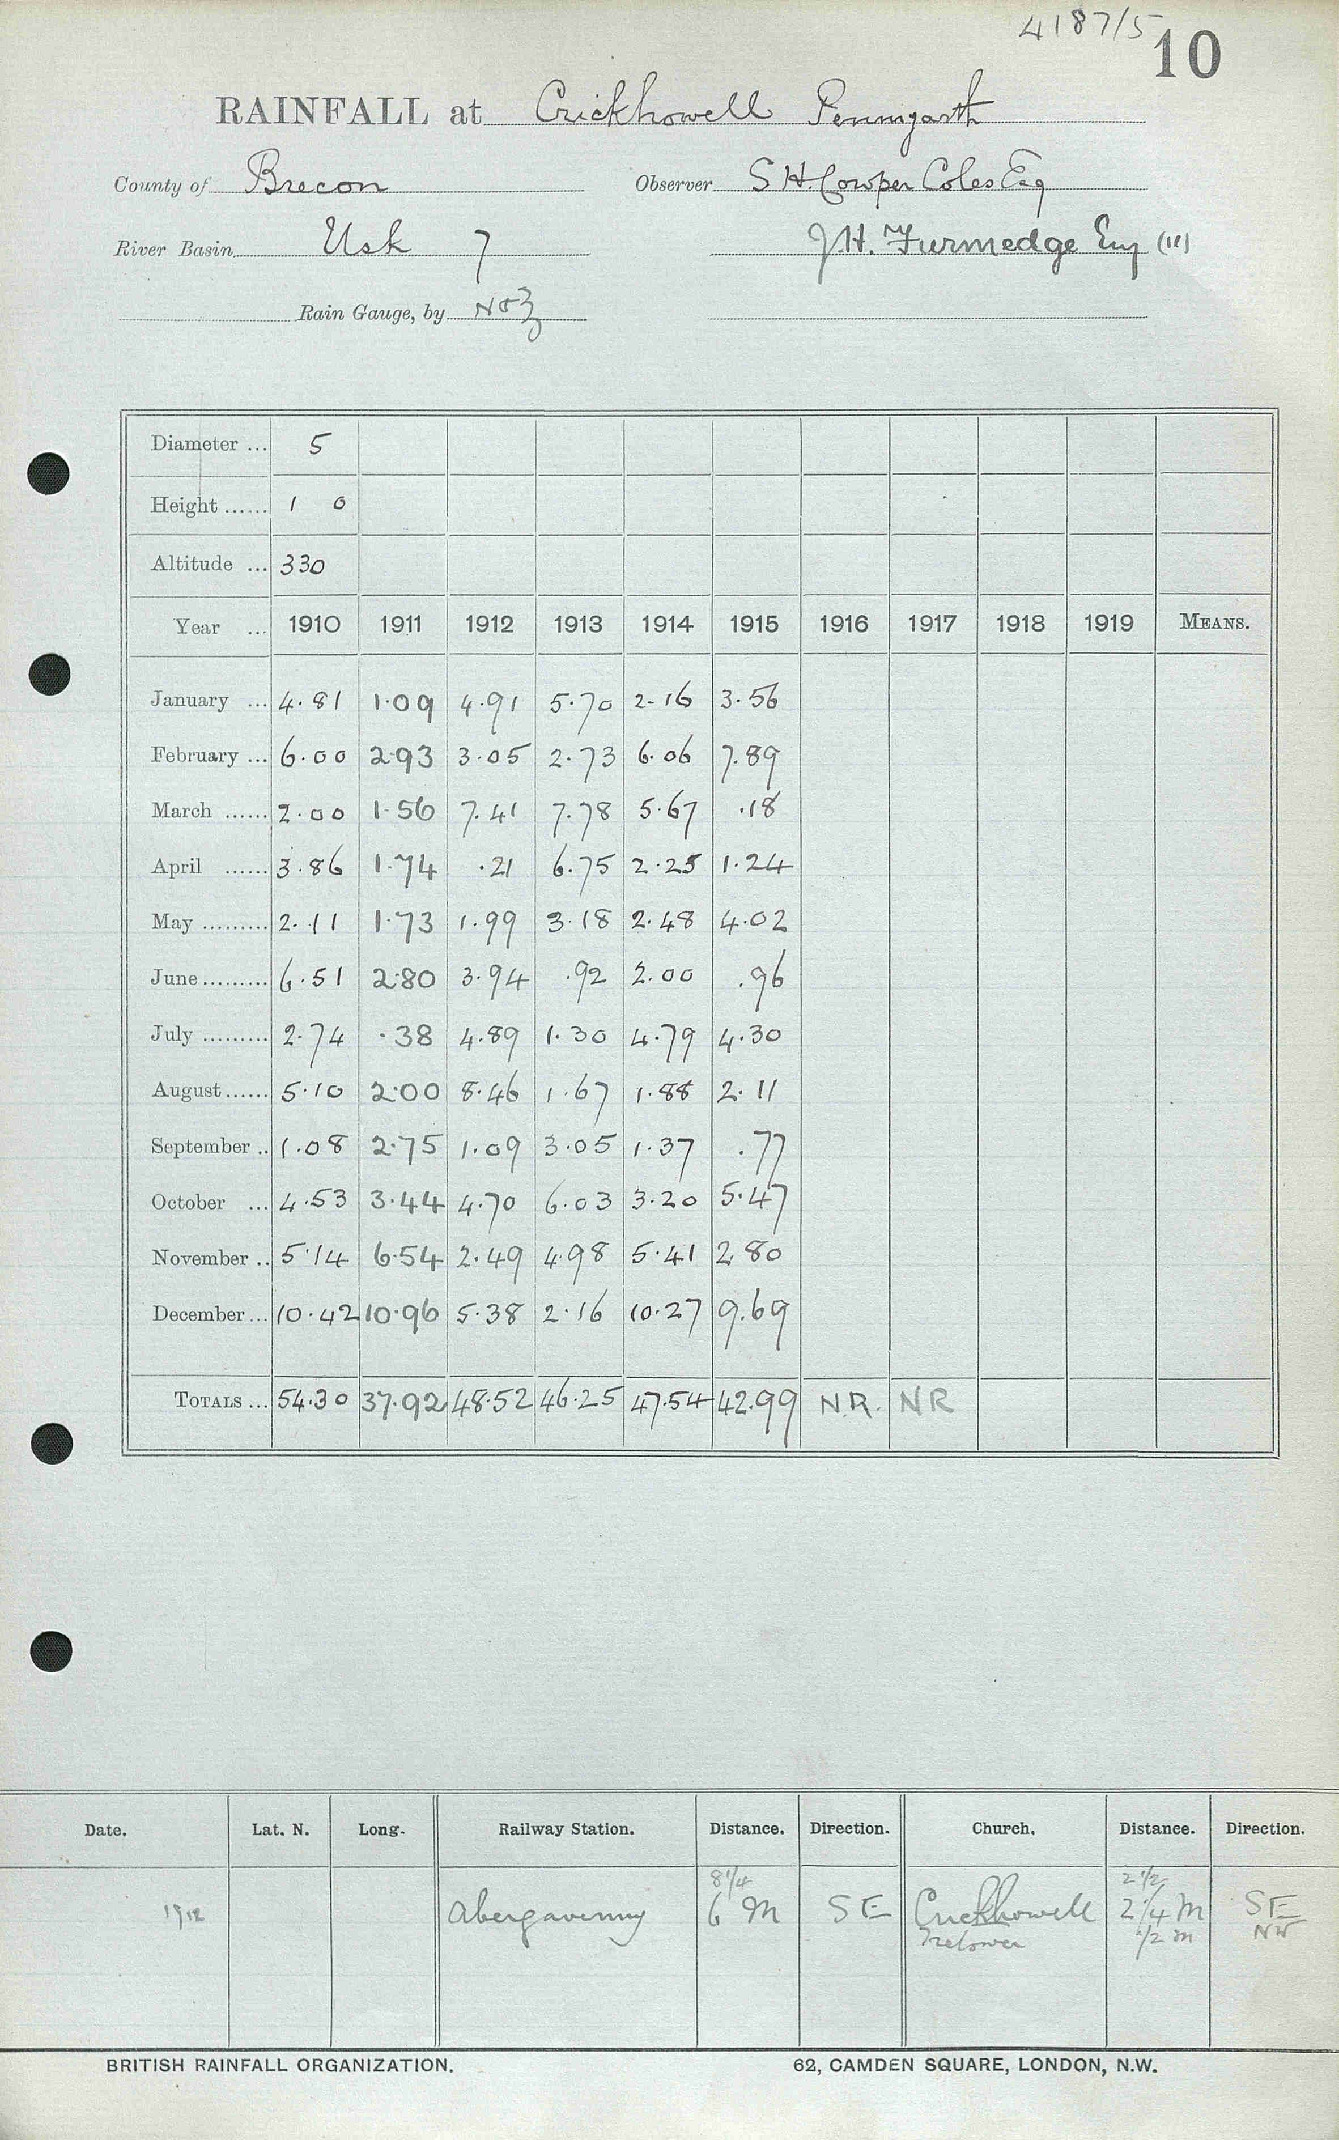 4187/5
10
RAINFALL at Crickhowell Penmyarth
County of Brecon Observer S H. Cowper Coles Esq
River Basin Usk 7 J H. Furmedge Esq (11)
Rain Gauge, by No 3
Diameter ... 5
Height ...... 1 0
Altitude ... 330
Year ... 1910 1911 1912 1913 1914 1915 1916 1917 1918 1919 MEANS.
January ... 4.81 1.09 4.91 5.70 2.16 3.56
February ... 6.00 2.93 3.05 2.73 6.06 7.89
March ...... 2.00 1.56 7.41 7.78 5.67 .18
April ...... 3.86 1.74 .21 6.75 2.25 1.24
May ......... 2.11 1.73 1.99 3.18 2.48 4.02
June ......... 6.51 2.80 3.94 .92 2.00 .96
July ......... 2.74 .38 4.89 1.30 4.79 4.30
August ...... 5.10 2.00 8.46 1.67 1.88 2.11
September .. 1.08 2.75 1.09 3.05 1.37 .77
October ... 4.53 3.44 4.70 6.03 3.20 5.47
November .. 5.14 6.54 2.49 4.98 5.41 2.80
December ... 10.42 10.96 5.38 2.16 10.27 9.69
TOTALS ... 54.30 37.92 48.52 46.25 47.54 42.99 N.R. NR
Date. Lat. N. Long. Railway Station. Distance. Direction. Church. Distance. Direction.
8 1/4 2 1/2
1912 Abergavenny 6 M SE Crickhowell 2 1/4 M SE
Tretower 1/2 m NW
BRITISH RAINFALL ORGANIZATION. 62, CAMDEN SQUARE, LONDON, N.W.